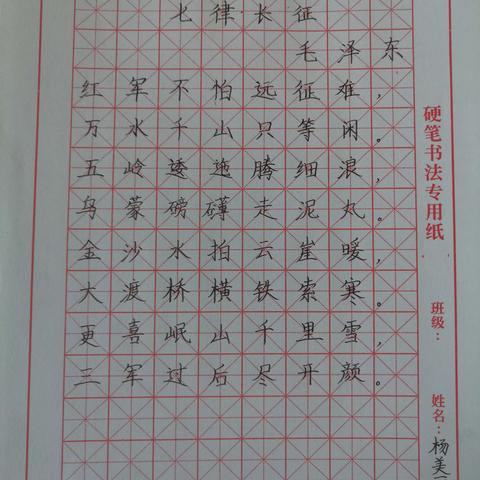 七律·长征
毛泽东
红军不怕远征难，
万水千山只等闲。
五岭逶迤腾细浪，
乌蒙磅礴走泥丸。
金沙水拍云崖暖，
大渡桥横铁索寒。
更喜岷山千里雪，
三军过后尽开颜。
硬笔书法专用纸
班级：
姓名：杨美